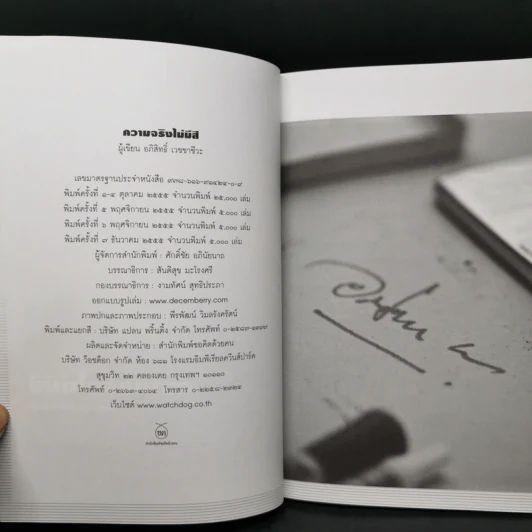 ความจริงไม่มีสี
ผู้เขียน อภิสิทธิ์ เวชชาชีวะ
เลขมาตรฐานประจำหนังสือ ๙๗๘-๖๑๖-๙๑๔๒๔-๐-๙
พิมพ์ครั้งที่ ๑-๔ ตุลาคม ๒๕๕๕ จำนวนพิมพ์ ๒๕,๐๐๐ เล่ม
พิมพ์ครั้งที่ ๕ พฤศจิกายน ๒๕๕๕ จำนวนพิมพ์ ๕,๐๐๐ เล่ม
พิมพ์ครั้งที่ ๖ พฤศจิกายน ๒๕๕๕ จำนวนพิมพ์ ๕,๐๐๐ เล่ม
พิมพ์ครั้งที่ ๗ ธันวาคม ๒๕๕๕ จำนวนพิมพ์ ๕,๐๐๐ เล่ม
ผู้จัดการสำนักพิมพ์ : ศักดิ์ชัย อภินัยนาถ
บรรณาธิการ : สันติสุข มะโรงศรี
กองบรรณาธิการ : งามทัศน์ สุทธิประภา
ออกแบบรูปเล่ม : www.decemberry.com
ภาพปกและภาพประกอบ : พีรพัฒน์ วิมลรังครัตน์
พิมพ์และแยกสี : บริษัท แปลน พริ้นติ้ง จำกัด โทรศัพท์
ผลิตและจัดจำหน่าย : สำนักพิมพ์ขอคิดด้วยคน
บริษัท ว็อชด็อก จำกัด ห้อง ๖๘๑ โรงแรมอิมพีเรียลควีนส์ปาร์ค
สุขุมวิท ๒๒ คลองเตย กรุงเทพฯ ๑๐๑๑๐
โทรศัพท์ ๐-๒๖๖๓-๔๐๖๔ โทรสาร ๐-๒๒๕๘-๒๓๒๔
เว็บไซต์ www.watchdog.co.th